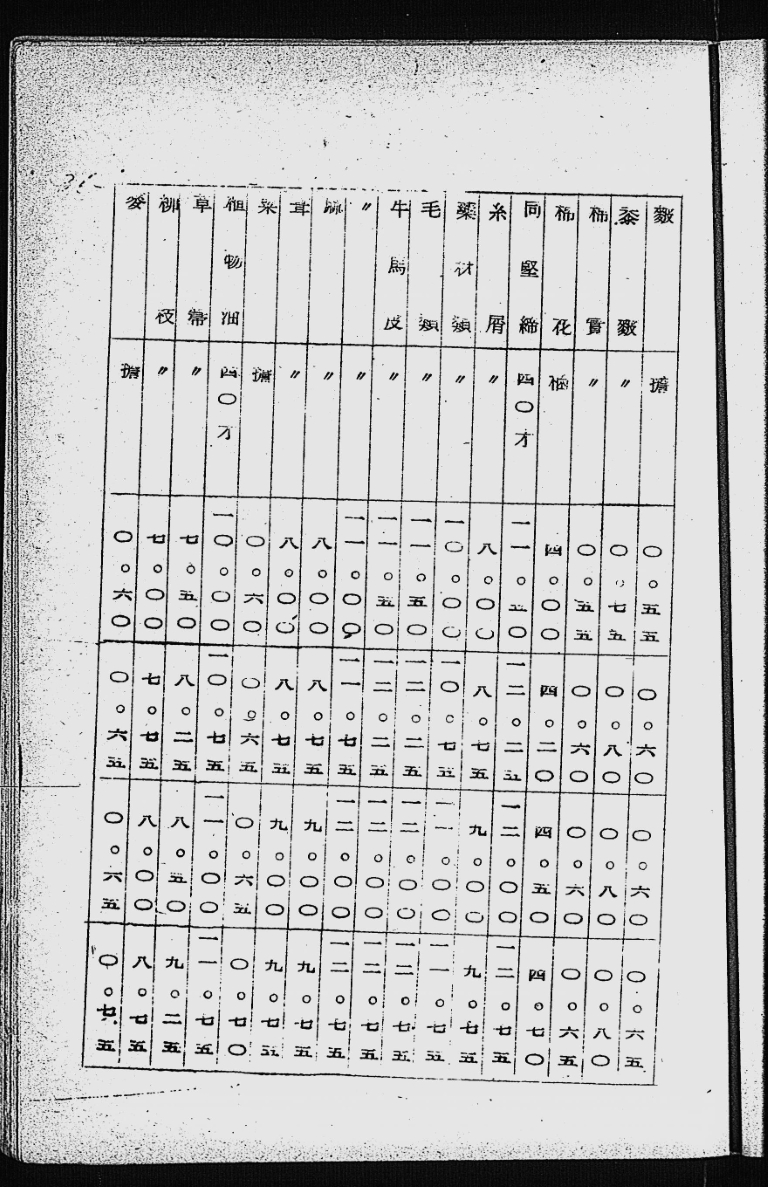 擔 〇。五五 〇。六〇 〇。六〇 〇。六五
黍 〃 〇。七五 〇。八〇 〇。八〇 〇。八〇
棉實 〃 〇。五五 〇。六〇 〇。六〇 〇。六五
棉花 梱 四。〇〇 四。二〇 四。五〇 四。七〇
同堅締 四〇才 一一。五〇 一二。二五 一二。〇〇 一二。七五
糸屑 〃 八。〇〇 八。七五 九。〇〇 九。七五
藥材類 〃 一〇。〇〇 一〇。七五 一一。〇〇 一一。七五
毛類 〃 一一。五〇 一二。二五 一二。〇〇 一二。七五
牛馬皮 〃 一一。五〇 一二。二五 一二。〇〇 一二。七五
〃 〃 一一。〇〇 一一。七五 一二。〇〇 一二。七五
〃 八。〇〇 八。七五 九。〇〇 九。七五
茸 〃 八。〇〇 八。七五 九。〇〇 九。七五
擔 〇。六〇 〇。六五 〇。六五 〇。七〇
植物油 四〇才 一〇。〇〇 一〇。七五 一一。〇〇 一一。七五
草帶 〃 七。五〇 八。二五 八。五〇 九。二五
柳枝 〃 七。〇〇 七。七五 八。〇〇 八。七五
麥 擔 〇。六〇 〇。六五 〇。六五 〇。七五